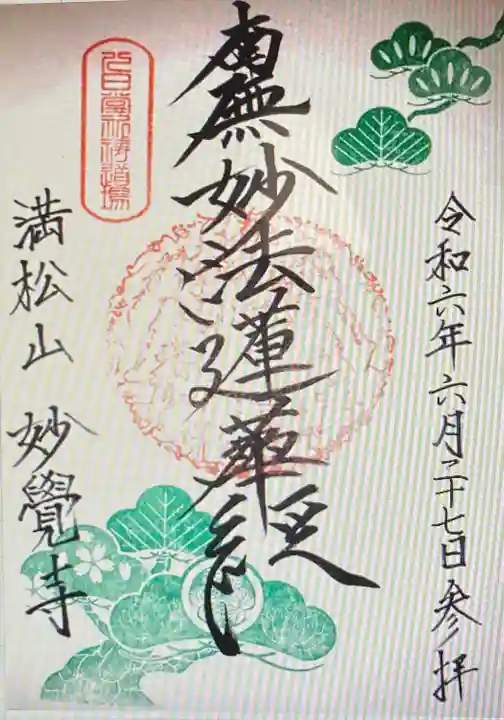 令和六年六月二十七日参拝
南無妙法蓮華経
己日黨祈祷道場
満松山 妙覺寺